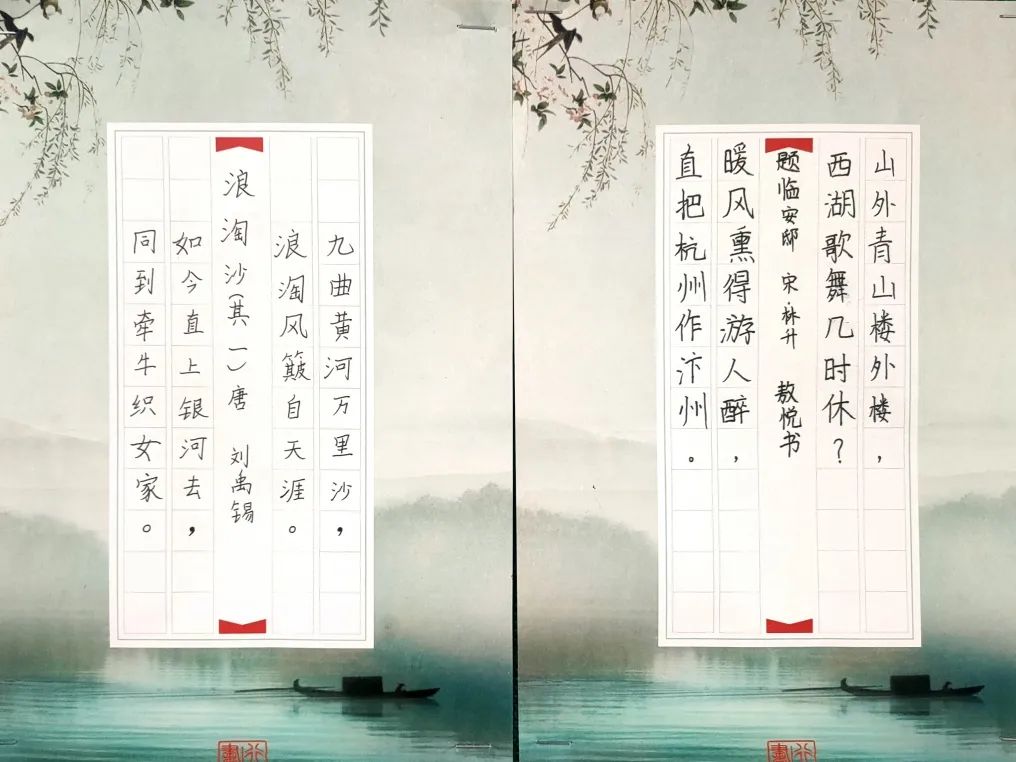 九曲黄河万里沙，
浪淘风簸自天涯。
浪淘沙(其一)唐 刘禹锡
如今直上银河去，
同到牵牛织女家。
山外青山楼外楼，
西湖歌舞几时休？
题临安邸 宋·林升 敖悦书
暖风熏得游人醉，
直把杭州作汴州。